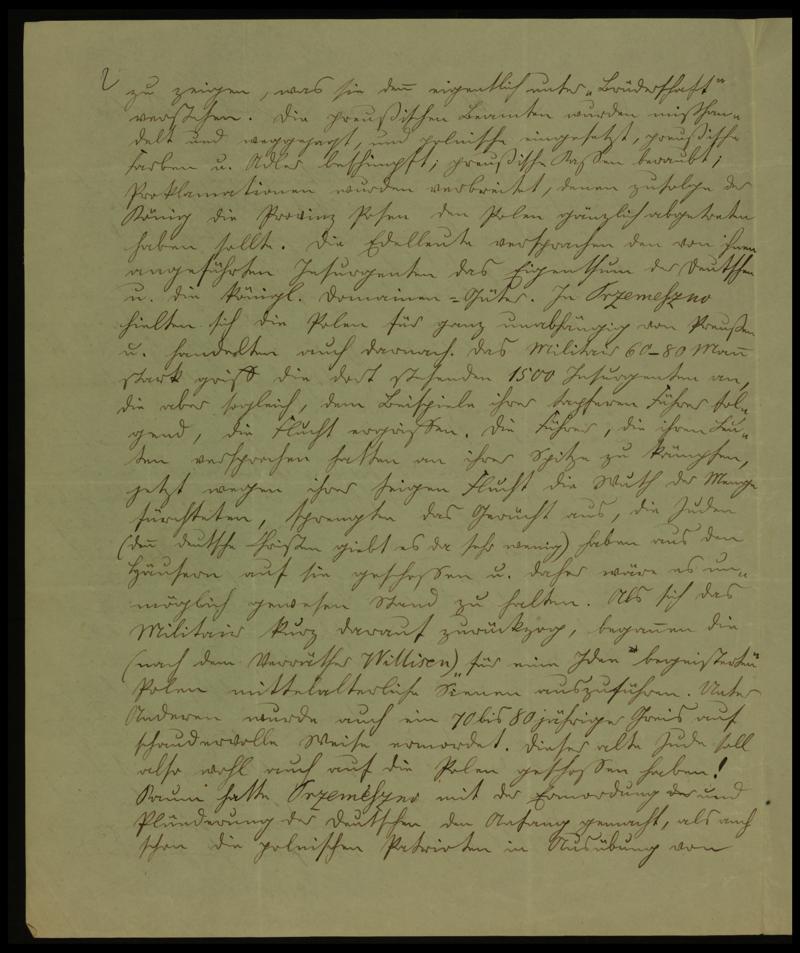 2
zu zeigen, was sie den̅ eigentlich unter „Brüderschaft"
verstehen. Die preußischen Beamten wurden mißhan-
delt und weggejagt, und polnische eingesetzt, preußische
Farben u. Adler beschimpft; preußische Kassen beraubt;
Proklamationen wurden verbreitet, denen zufolge der
König die Provinz Posen den Polen gänzlich abgetreten
haben sollte. Die Edelleute versprachen den von ihnen
angeführten Insurgenten das Eigenthum der Deutschen
u. die königl. Domainen-Güter. In Trzemeszno
hielten sich die Polen für ganz unabhängig von Preußen
u. handelten auch darnach. Das Militair 60–80 Man̅
stark griff die dort stehenden 1500 Insurgenten an,
die aber sogleich, dem Beispiele ihrer tapferen Führer fol-
gend, die Flucht ergriffen. Die Führer, die ihren Leu-
ten versprochen hatten an ihrer Spitze zu kämpfen,
jetzt wegen ihrer feigen Flucht die Wuth der Menge
fürchteten, sprengten das Gerücht aus, die Juden
(den̅ deutsche Christen giebt es da sehr wenig) haben aus den
Häusern auf sie geschossen u. daher wäre es un-
möglich gewesen Stand zu halten. Als sich das
Militair kurz darauf zurückzog, began̅en die
(nach dem Verräther Willisen) „für eine Idee" begeisterten
Polen mittelalterliche Scenen auszuführen. Unter
Anderen wurde auch ein 70 bis 80 jähriger Greis auf
schaudervolle Weise ermordet. Dieser alte Jude soll
also wohl auch auf die Polen geschossen haben!
Kaum hatte Trzemeszno mit der Ermordung der und
Plünderung der Deutschen den Anfang gemacht, als auch
schon die polnischen Patrioten in Ausübung von